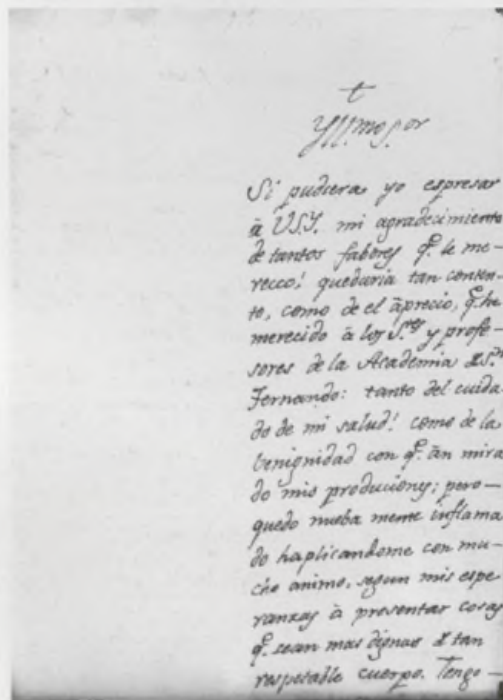 †
Yll.mo S.or
Si pudiera yo espresar
à USY. mi agradecimiento
de tantos fabores q.e le me–
rezco! quedaria tan conten–
to, como de el àprecio, q.e he
merecido à los S.res y profe–
sores de la Academia de S.n
Fernando: tanto del cuida
do de mi salud! como de la
benignidad con q.e àn mira
do mis produciones; pero–
quedo nueba mente inflama
do haplicandome con mu–
cho animo, segun mis espe
ranzas à presentar cosas
q.e sean mas dignas de tan
respetable cuerpo. Tengo–